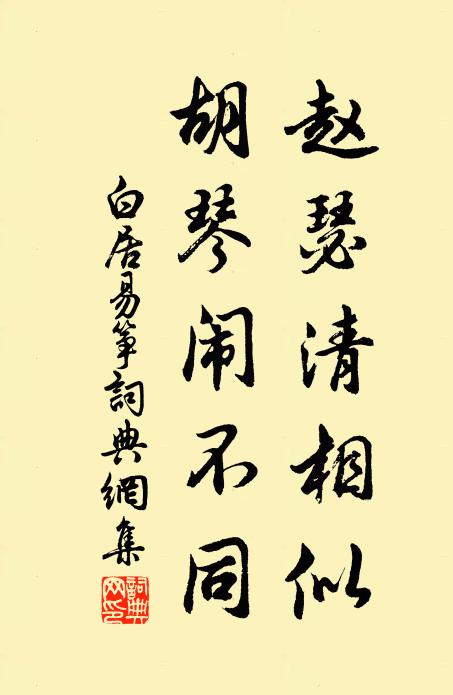 赵瑟清相似
胡琴闹不同
白居易筝詞典網集
詞典网印